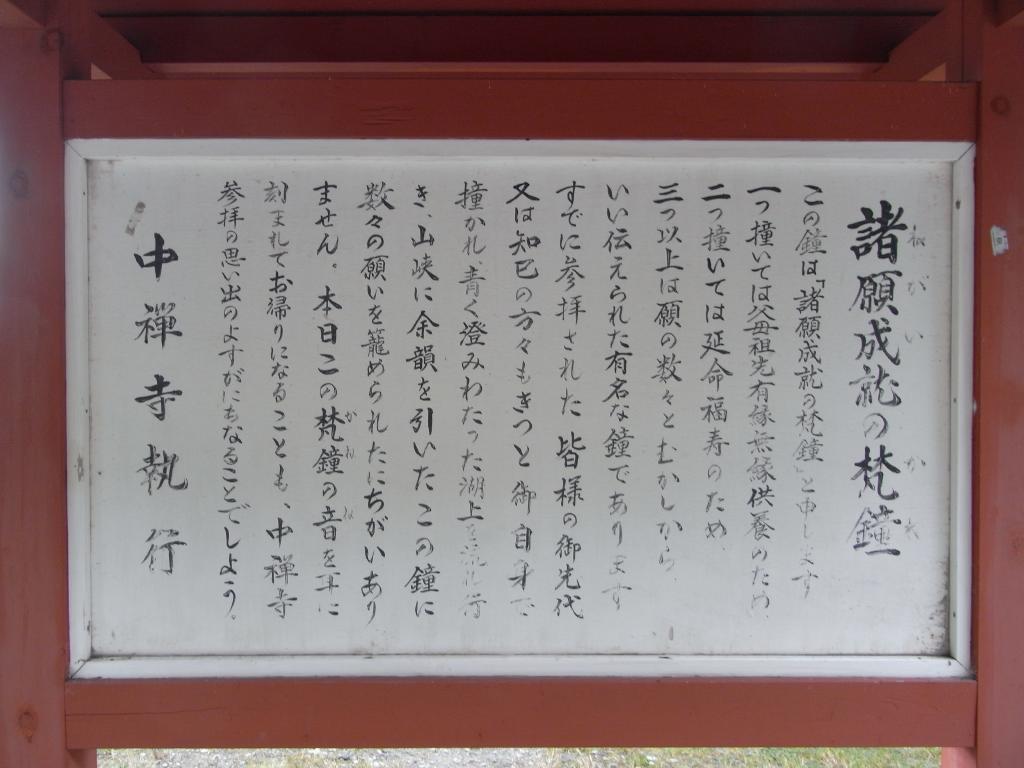 諸願成就の梵鐘
この鐘は「諸願成就の梵鐘」と申します
一つ撞いては父母祖先有縁無縁供養のため、
二つ撞いては延命福寿のため、
三つ以上は願の数々とむかしから、
いい伝えられた有名な鐘であります
すでに参拝された皆様の御先代
又は知己の方々もきっと御自身で
撞かれ、青く澄みわたった湖上を流れ行
き、山峡に余韻を引いたこの鐘に
数々の願いを籠められたにちがいあり
ません。本日この梵鐘の音を耳に
刻まれてお帰りになることも、中禅寺
参拝の思い出のよすがにもなることでしよう。
中禅寺執行